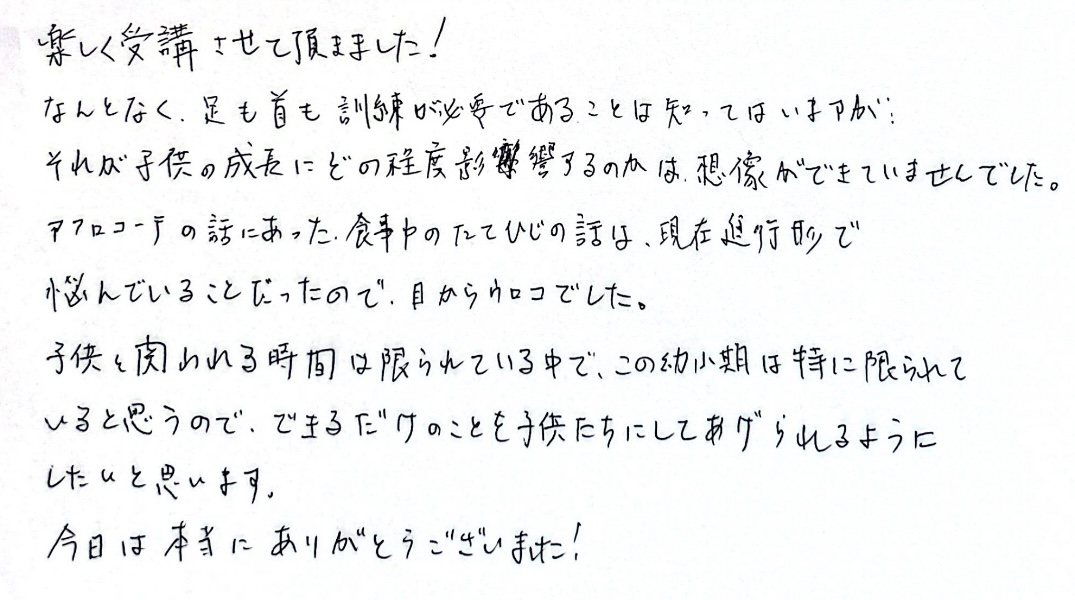 楽しく受講させて頂きました！
なんとなく、足も首も訓練が必要であることは知ってはいますが…
それが子供の成長にどの程度影響するのかは、想像ができていませんでした。
アフロコーデの話にあった、食事中のたてひじの話は、現在進行形で
悩んでいることだったので、目からウロコでした。
子供と関われる時間は限られている中で、この幼小期は特に限られて
いると思うので、できるだけのことを子供たちにしてあげられるように
したいと思います。
今日は本当にありがとうございました！